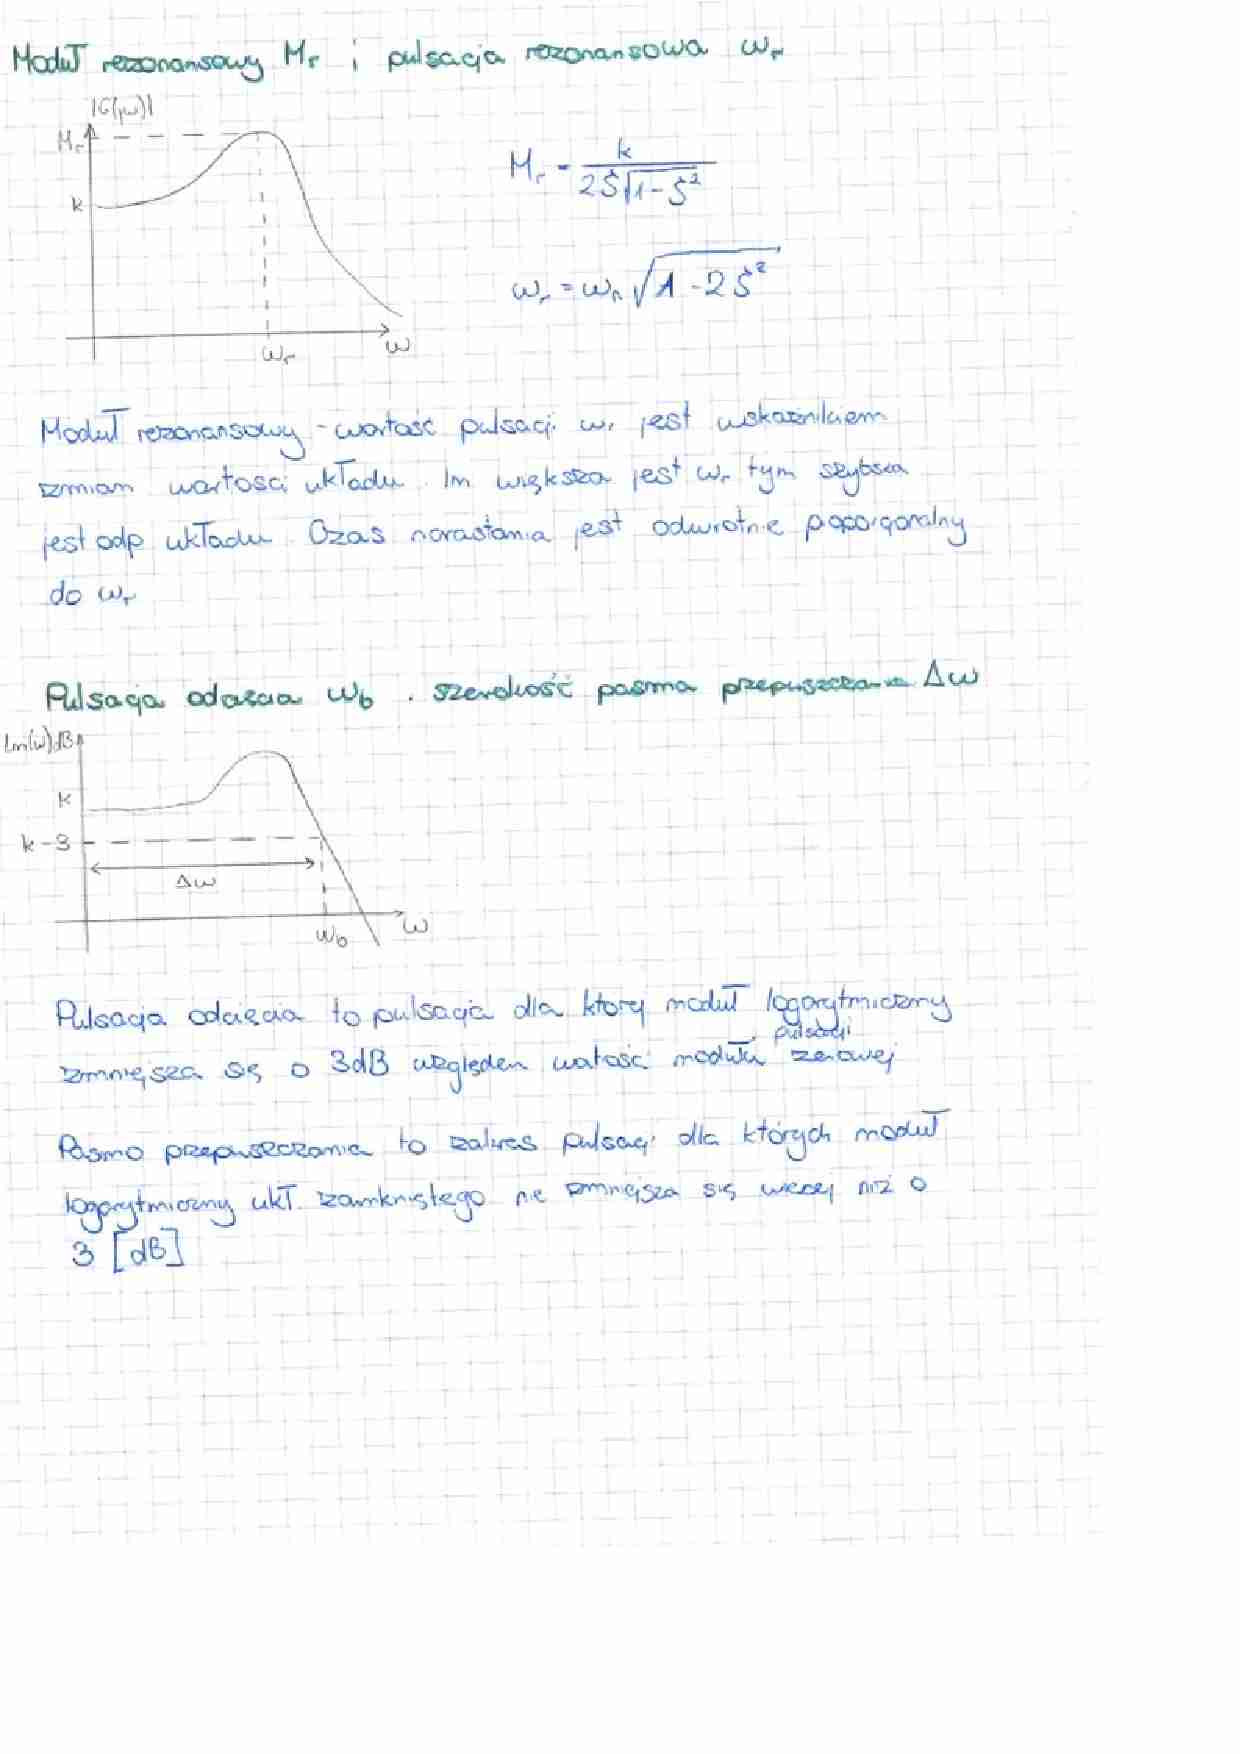 Moduł rezonansowy Mr i pulsacja rezonansowa ωr
|G(jω)|
Mr
k
ωr
ω
Mr = k / 2ξ√1-ξ²
ωr = ωn √1-2ξ²
Moduł rezonansowy - wartość pulsacji ωr jest wskaźnikiem
zmian wartosci układu. Im większa jest ωr tym szybsza
jest odp układu. Czas narastania jest odwrotnie proporcjonalny
do ωr
Pulsacja odcięcia ωb . szerokość pasma przepuszczania Δω
Lm(ω) dB
k
k-3
Δω
ωb
ω
Pulsacja odcięcia to pulsacja dla ktorej moduł logarytmiczny
pulsacji
zmniejsza się o 3dB względem watości modułu zerowej
Pasmo przepuszczania to zakres pulsacji dla których moduł
logarytmiczny ukł. zamkniętego nie zmniejsza się wiecej niż o
3 [dB]